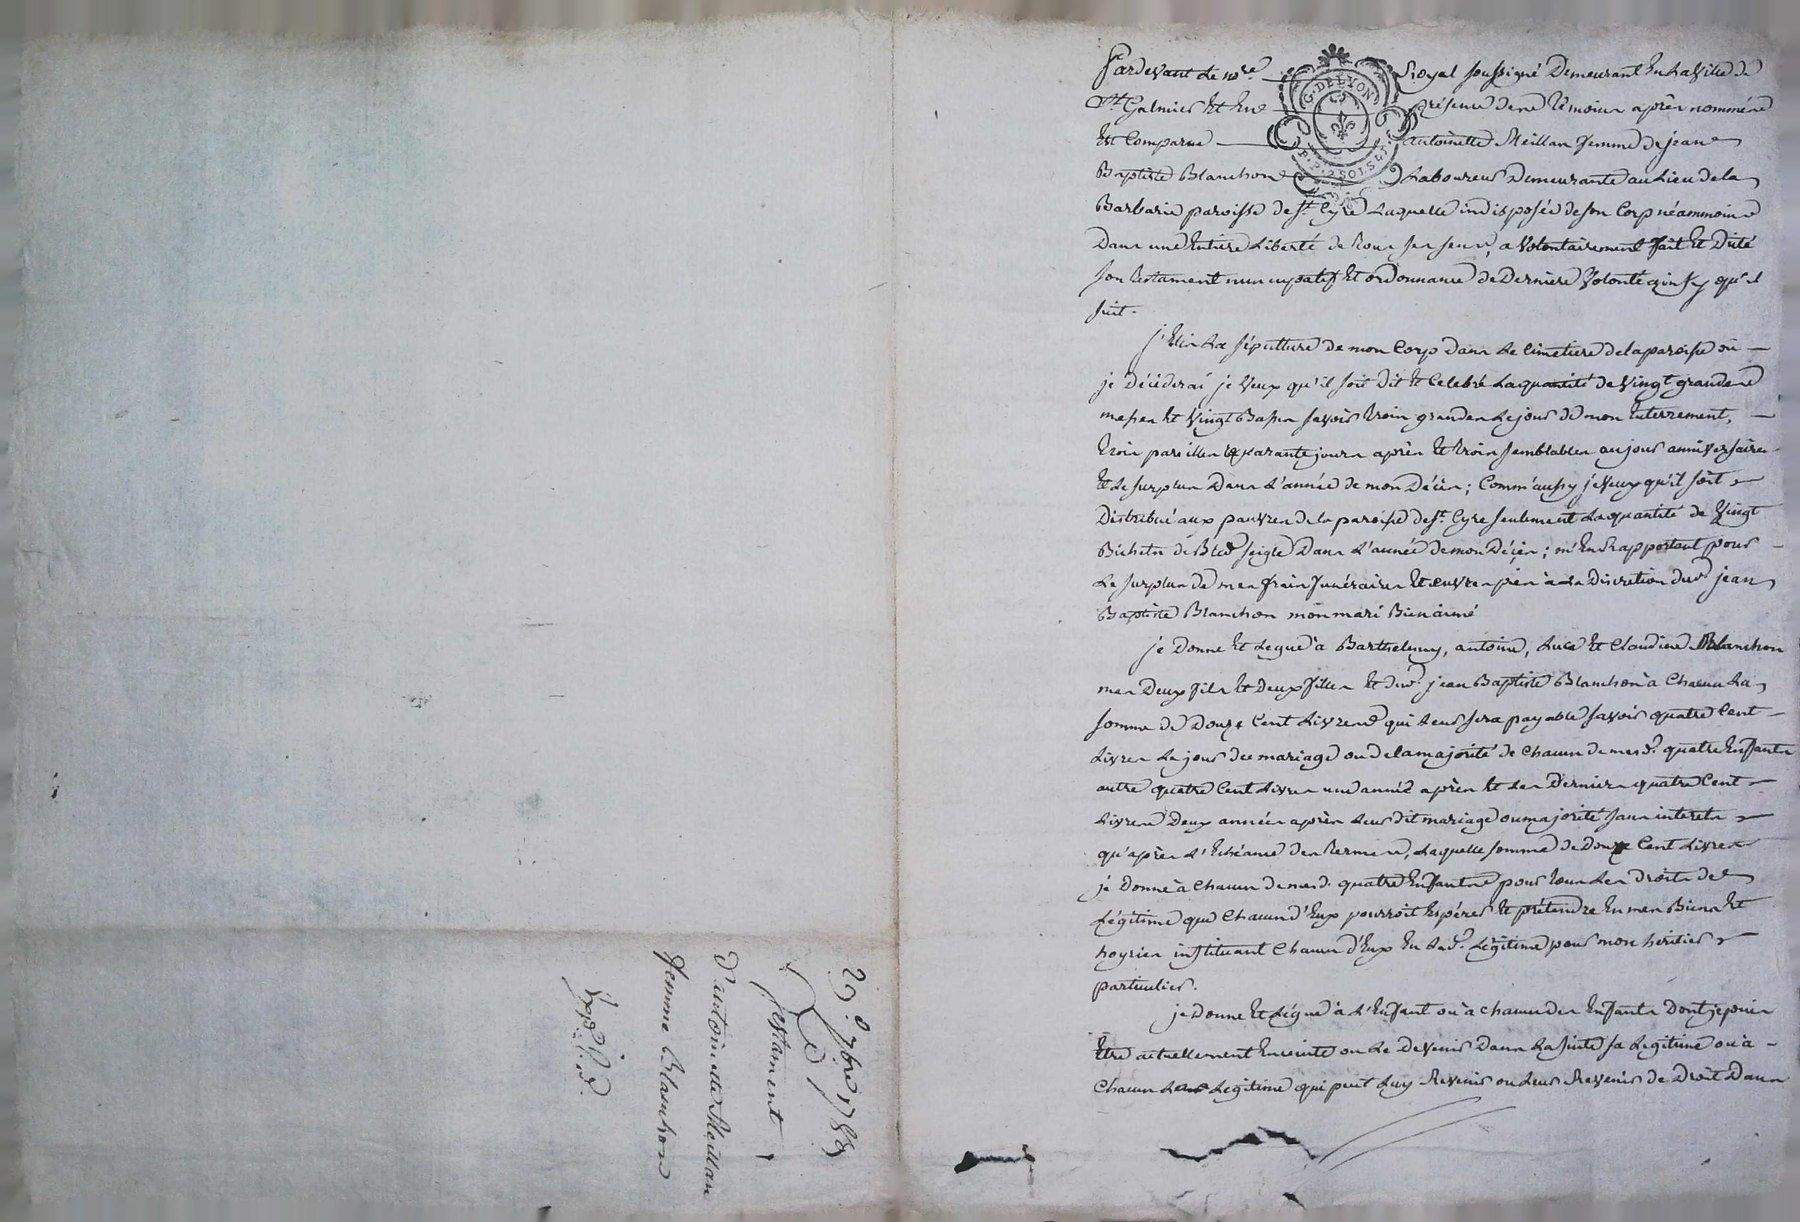 Pardevant Le nore Royal soussigné Demeurant En La Ville de
St Galmier Et En présence dene témoins après nommés
Est Comparue Antoinette Meillan femme de jean
Baptiste Blanchon Laboureur Demeurante au Lieu de la
Barbarie paroisse de St Cyre Laquelle indisposée de son Corp néammoins
Dans une Entiere Liberté de tous ses sens, a Volontairement fait Et Dicté
son testament nuncupatif Et ordonnance de Derniere Volonté ainsy qu'il
suit.
j'Elis La sépulture de mon Corp dans Le Cimetiere de la paroisse où
je Décéderai je Veux qu'il soit Dit Et Celebré La quantité de Vingt grandes
messes Et Vingt Basses savoir trois grandes Le jour de mon Enterrement,
trois pareilles quarante jours après Et trois semblables au jour anniversaire
Et Le surplus Dans L'année de mon Décès; Comm'aussy je Veux qu'il soit
Distribué aux pauvres de la paroisse de St Cyre seulement La quantité de Vingt
Bichets de Bled seigle Dans L'année de mon Décès; m'En Rapportant pour
Le surplus de mes frais funéraires Et œuvres pies à La Discretion dud. jean
Baptiste Blanchon mon mari Bien aimé
je Donne Et Legue à Barthelemy, antoine, Luce Et Claudine Blanchon
mes Deux fils Et Deux filles Et dud. jean Baptiste Blanchon à Chacun La
somme de Douze Cent Livres qui Leur sera payable savoir quatre Cent
Livres Le jour du mariage ou de la majorité de Chacun de mesd. quatre Enfants
autre quatre Cent Livres une année après Et Les Derniers quatre Cent
Livres Deux années après Leur dit mariage ou majorité sans interets
qu'après L'Echéance des termes, Laquelle somme de Douze Cent Livres
je Donne à Chacun de mesd. quatre Enfants pour tous Les droits de
Légitime que Chacun d'Eux pourroit Espérer Et prétendre En mes Biens Et
hoyries instituant Chacun d'Eux En Lad. Légitime pour mon héritier
particulier.
je Donne Et Légue à L'Enfant ou à Chacun des Enfants Dont je puis
Etre actuellement Enceinte ou Le Devenir Dans La suite sa Legitime ou à
Chacun Leur Legitime qui peut Luy Revenir ou Leur Revenir de Droit Dans
7bre 1789
Testament
D'antoinette Meillan
femme Blanchon